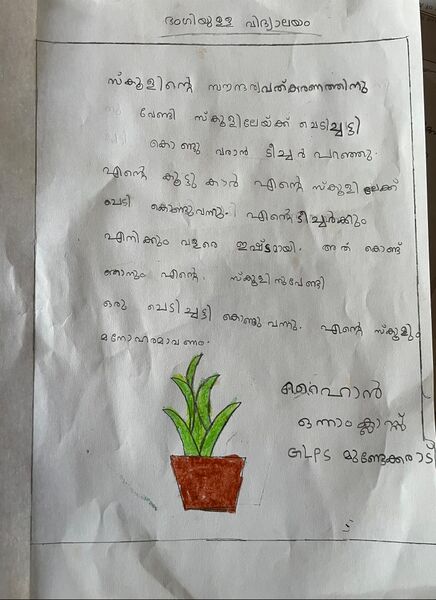 ഭംഗിയുള്ള വിദ്യാലയം
സ്കൂളിന്റെ സൗന്ദര്യവത്കരണത്തിനു
വേണ്ടി സ്കൂളിലേയ്ക്ക് ചെടിച്ചട്ടി
കൊണ്ടു വരാൻ ടീച്ചർ പറഞ്ഞു.
എന്റെ കൂട്ടുകാർ എന്റെ സ്കൂളിലേക്ക്
ചെടി കൊണ്ടുവന്നു. എന്റെ ടീച്ചർക്കും
എനിക്കും വളരെ ഇഷ്ടമായി. അത് കൊണ്ട്
ഞാനും എന്റെ. സ്കൂളിനുവേണ്ടി
ഒരു ചെടിച്ചട്ടി കൊണ്ടു വന്നു. എന്റെ സ്കൂളും
മനോഹരമാവണം.
റൈഹാൻ
ഒന്നാം ക്ലാസ്സ്
GLPS മുണ്ടേക്കരാട്